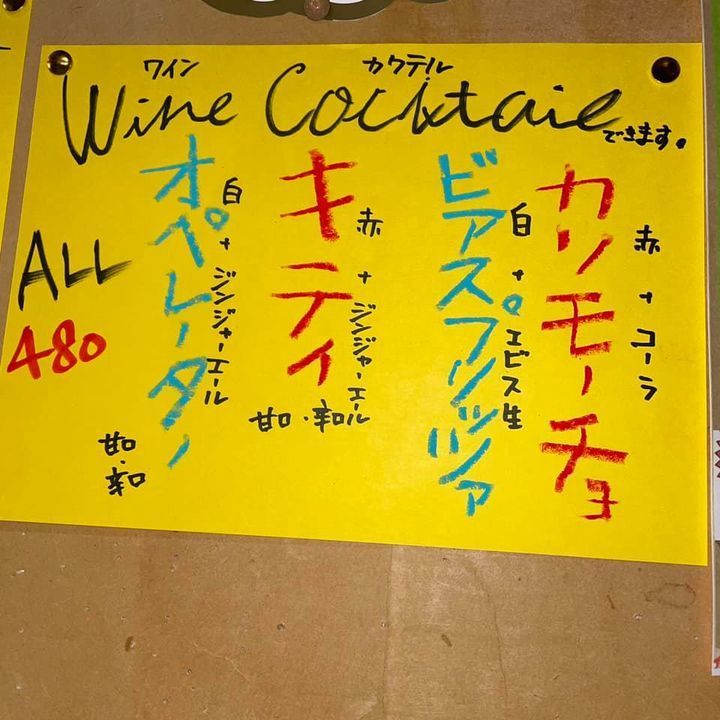 ワイン カクテル
Wine Cocktail できます。
カリモーチョ
赤+コーラ
ビアスプリッツァ
白+エビス生
キティ
赤+ジンジャーエール
甘・辛
オペレーター
白+ジンジャーエール
甘・辛
ALL
480